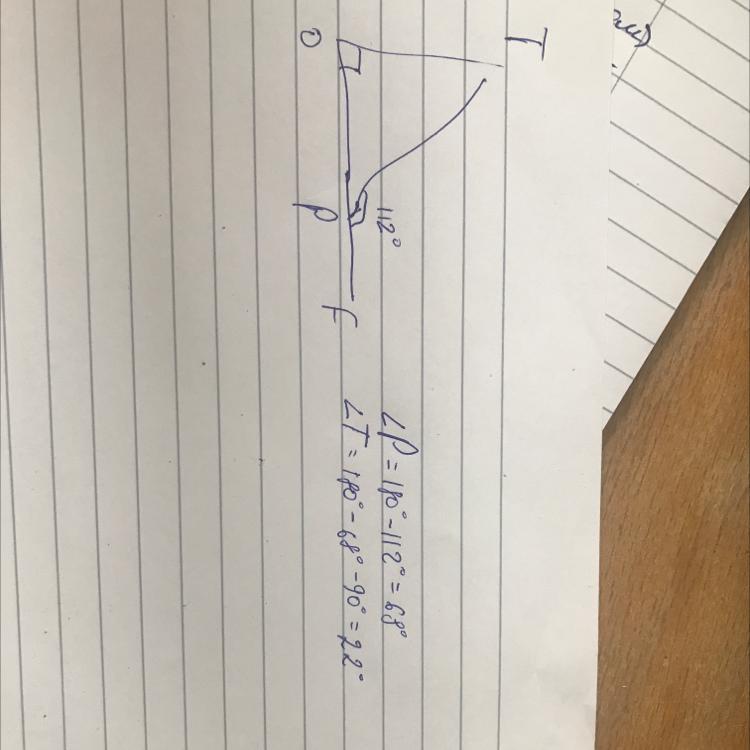 T
O
112°
P
F
∠P = 180° - 112° = 68°
∠T = 180° - 68° - 90° = 22°